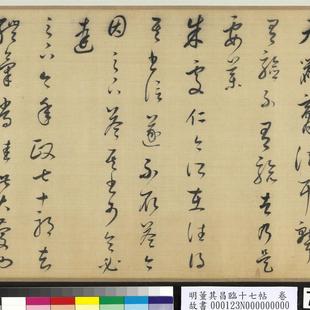 天鼠膏治耳聾
有驗不有驗者乃是
要藥
朱處仁今所在往得
其書信遂不取答今
因足下答其書可令必
達
足下今年政七十耶知
體氣常佳此大慶也
明董其昌臨十七帖 卷
故書000123N000000000